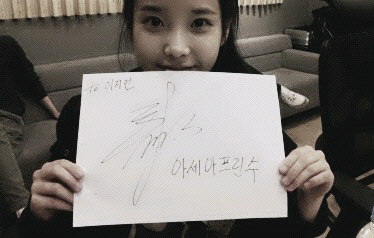 To 이지민
아세아프린수